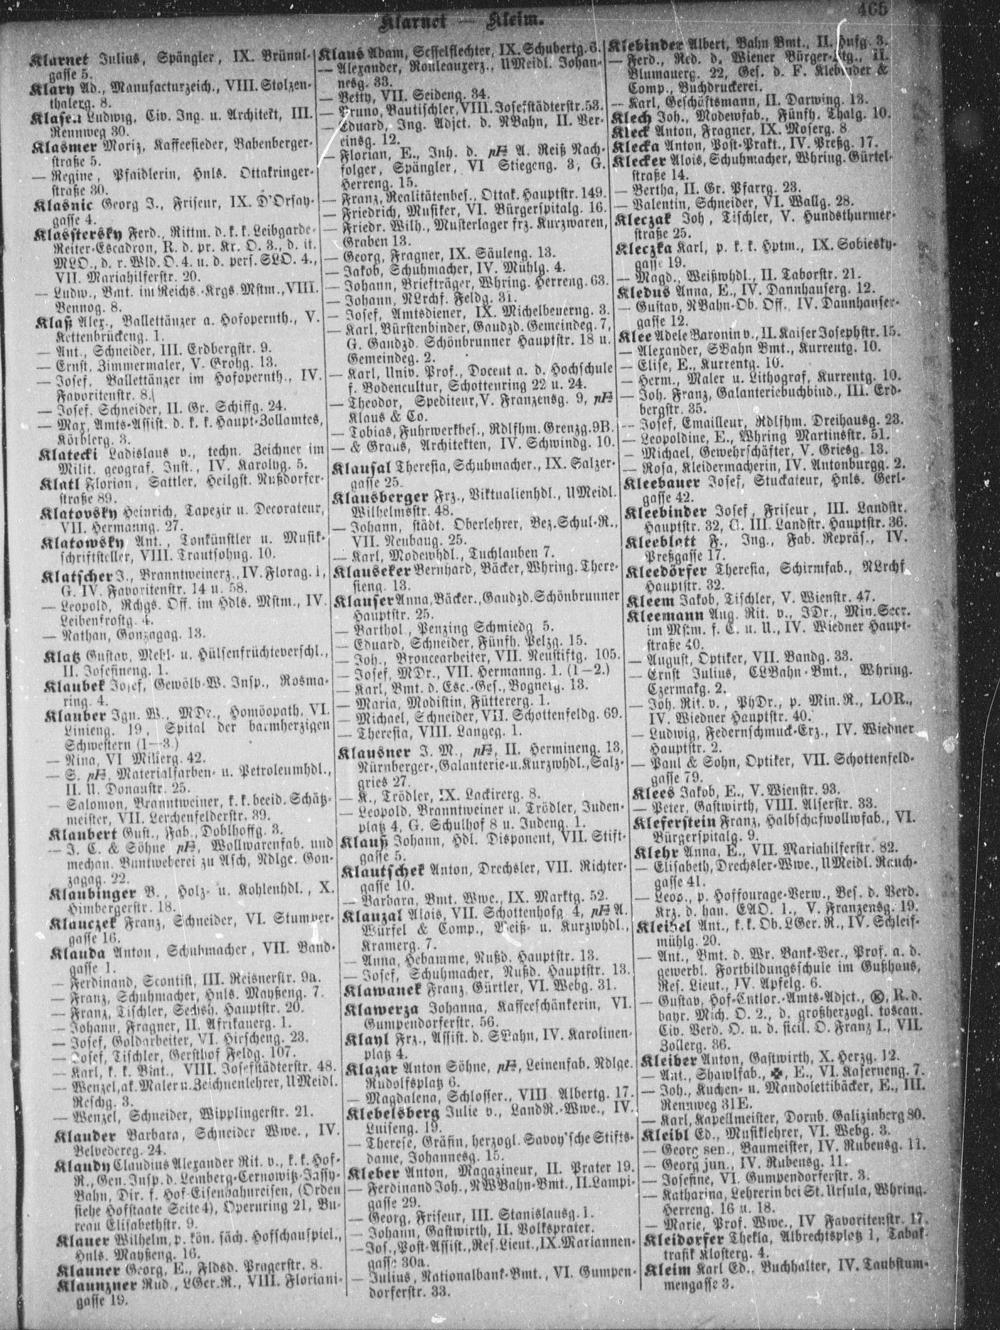 Klarnet — Kleim.
465
Klarnet Julius, Spängler, IX. Brünnl-
gasse 5.
Klary Ad., Manufacturzeich., VIII. Stolzen-
thalerg. 8.
Ludwig, Civ. Ing. u. Architekt, III.
Rennweg 30.
Klasmer Moriz, Kaffeesieder, Babenberger-
straße 5.
— Regine, Pfaidlerin, Hnls. Ottakringer-
straße 30.
Klasnic Georg J., Friseur, IX. D'Orsay-
gasse 4.
Klasstersky Ferd., Rittm. d. k. k. Leibgarde-
Reiter-Escadron, R. d. pr. Kr. O. 3., d. it.
MLO., d. r. Wld. O. 4. u. d. pers. SLO. 4.,
VII. Mariahilferstr. 20.
— Ludw., Bmt. im Reichs.-Krgs. Mstm., VIII.
Bennog. 8.
Klaß Alex., Ballettänzer a. Hofopernth., V.
Kettenbrückeng. 1.
— Ant., Schneider, III. Erdbergstr. 9.
— Ernst, Zimmermaler, V. Grohg. 13.
— Josef, Ballettänzer im Hofopernth., IV.
Favoritenstr. 8.
— Josef, Schneider, II. Gr. Schiffg. 24.
— Max, Amts-Assist. d. k. k. Haupt-Zollamtes,
Körblerg. 3.
Klatecki Ladislaus v., techn. Zeichner im
Milit. geograf. Inst., IV. Karolyg. 5.
Klatl Florian, Sattler, Heilgst. Nußdorfer-
straße 89.
Klatovsky Heinrich, Tapezir u. Decorateur,
VII. Hermanng. 27.
Klatowsky Ant., Tonkünstler u. Musik-
schriftsteller, VIII. Trautsohng. 10.
Klatscher J., Branntweinerz., IV. Florag. 1,
G. IV. Favoritenstr. 14 u. 58.
— Leopold, Rchgs. Off. im Hdls. Mstm., IV.
Leibenfrostg. 4.
— Nathan, Gonzagag. 13.
Klatz Gustav, Mehl- u. Hülsenfrüchteverschl.,
II. Josefineng. 1.
Klaubek Josef, Gewölb-W. Insp., Rosma-
ring. 4.
Klauber Ign. W., MDr., Homöopath, VI.
Linieng. 19, Spital der barmherzigen
Schwestern (1—3)
— Nina, VI Millerg. 42.
— S. pH, Materialfarben- u. Petroleumhdl.,
II. U. Donaustr. 25.
— Salomon, Branntweiner, k. k. beeid. Schätz-
meister, VII. Lerchenfelderstr. 39.
Klaubert Gust., Fab., Doblhoffg. 3.
— J. C. & Söhne pH, Wollwarenfab. und
mechan. Buntweberei zu Asch, Ndlge. Gon-
zagag. 22.
Klaubinger B., Holz- u. Kohlenhdl., X.
Himbergerstr. 18.
Klauczek Franz, Schneider, VI. Stumper-
gasse 16.
Klauda Anton, Schuhmacher, VII. Band-
gasse 1.
— Ferdinand, Scontist, III. Reisnerstr. 9a.
— Franz, Schuhmacher, Hnls. Mayßeng. 7.
— Franz, Tischler, Sechsh. Hauptstr. 20.
— Johann, Fragner, II. Afrikanerg. 1.
— Josef, Goldarbeiter, VI. Hirscheng. 23.
— Josef, Tischler, Gersthof Feldg. 107.
— Karl, k. k. Bmt., VIII. Josefstädterstr. 48.
— Wenzel, ak. Maler u. Zeichnenlehrer, UMeidl.
Reschg. 3.
— Wenzel, Schneider, Wipplingerstr. 21.
Klauder Barbara, Schneider Wwe., IV.
Belvederg. 24.
Klaudy Claudius Alexander Rit. v., k. k. Hof-
R., Gen. Insp. d. Lemberg-Cernowitz-Jassy-
Bahn, Dir. f. Hof-Eisenbahnreisen, (Orden
siehe Hofstaate Seite 4), Opernring 21, Bu-
reau Elisabethstr. 9.
Klauer Wilhelm, p. kön. säch. Hofschauspiel.,
Hnls. Mayßeng. 16.
Klauner Georg, E., Fldsd. Pragerstr. 8.
Klaunzner Rud., LGer. R., VIII. Floriani-
gasse 19.
Klaus Adam, Sesselflechter, IX. Schubertg. 6.
— Alexander, Rouleauxerz., UMeidl. Johan-
nesg. 33.
— Betty, VII. Seideng. 34.
— Bruno, Bautischler, VIII. Josefstädterstr. 53.
— Eduard, Ing. Adjct. d. NBahn, II. Ver-
einsg. 12.
— Florian, E., Inh. d. pH A. Reiß Nach-
folger, Spängler, VI Stiegeng. 3, G.
Herreng. 15.
— Franz, Realitätenbes., Ottak. Hauptstr. 149.
— Friedrich, Musiker, VI. Bürgerspitalg. 16.
— Friedr. Wilh., Musterlager frz. Kurzwaren,
Graben 13.
— Georg, Fragner, IX. Säuleng. 13.
— Jakob, Schuhmacher, IV. Mühlg. 4.
— Johann, Briefträger, Whring. Herreng. 63.
— Johann, NLrchf. Feldg. 31.
— Josef, Amtsdiener, IX. Michelbeuerng. 3.
— Karl, Bürstenbinder, Gaudzd. Gemeindeg. 7,
G. Gaudzd. Schönbrunner Hauptstr. 18 u.
Gemeindeg. 2.
— Karl, Univ. Prof., Docent a. d. Hochschule
f. Bodencultur, Schottenring 22 u. 24.
— Theodor, Spediteur, V. Franzensg. 9, pH
Klaus & Co.
— Tobias, Fuhrwerkbes., Rdlfhm. Grenzg. 9B.
— & Graus, Architekten, IV. Schwindg. 10.
Klausal Theresia, Schuhmacher., IX. Salzer-
gasse 25.
Klausberger Frz., Viktualienhdl., UMeidl.
Wilhelmsstr. 48.
— Johann, städt. Oberlehrer, Bez.-Schul-R.,
VII. Neubaug. 25.
— Karl, Modewhdl., Tuchlauben 7.
Klauseker Bernhard, Bäcker, Whring. There-
sieng. 13.
Klauser Anna, Bäcker., Gaudzd. Schönbrunner
Hauptstr. 25.
— Barthol, Penzing Schmiedg 5.
— Eduard, Schneider, Fünfh. Pelzg. 15.
— Joh., Broncearbeiter, VII. Neustiftg. 105.
— Josef, MDr., VII. Hermanng. 1. (1—2.)
— Karl, Bmt. d. Esc.-Ges., Bognerg. 13.
— Maria, Modistin, Füttererg. 1.
— Michael, Schneider, VII. Schottenfeldg. 69.
— Theresia, VIII. Langeg. 1.
Klausner J. M., pH, II. Hermineng. 13,
Nürnberger-, Galanterie-u. Kurzwhdl., Salz-
gries 27.
— K., Trödler, IX. Lackirerg. 8.
— Leopold, Branntweiner u. Trödler, Juden-
platz 4, G. Schulhof 8 u. Judeng. 1.
Klauß Johann, Hdl. Disponent, VII. Stift-
gasse 5.
Klautschek Anton, Drechsler, VII. Richter-
gasse 10.
— Barbara, Bmt. Wwe., IX. Marktg. 52.
Klauzal Alois, VII. Schottenhofg 4, pH A.
Würfel & Comp., Weiß- u. Kurzwhdl.,
Kramerg. 7.
— Anna, Hebamme, Nußd. Hauptstr. 13.
— Josef, Schuhmacher, Nußd. Hauptstr. 13.
Klawanek Franz, Gürtler, VI. Webg. 31.
Klawerza Johanna, Kaffeeschänkerin, VI.
Gumpendorferstr. 56.
Klayl Frz., Assist. d. SBahn, IV. Karolinen-
platz 4.
Klazar Anton Söhne, pH, Leinenfab. Ndlge.
Rudolfsplatz 6.
— Magdalena, Schlosser., VIII Albertg. 17.
Klebelsberg Julie v., LandR.-Wwe., IV.
Luiseng. 19.
— Therese, Gräfin, herzogl. Savoy'sche Stifts-
dame, Johannesg. 15.
Kleber Anton, Magazineur, II. Prater 19.
— Ferdinand Joh., NWBahn-Bmt., II. Lampi-
gasse 29.
— Georg, Friseur, III. Stanislausg. 1.
— Johann, Gastwirth, II. Volksprater.
— Jos., Post-Assist., Res. Lieut., IX. Mariannen-
gasse 30a.
— Julius, Nationalbank-Bmt., VI. Gumpen-
dorferstr. 33.
Klebinder Albert, Bahn Bmt., II. Hufg. 3.
— Ferd., Red. d. Wiener Bürger-Ztg., II.
Blumauerg. 22, Ges. d. F. Klebinder &
Comp., Buchdruckerei.
— Karl, Geschäftsmann, II. Darwing. 13.
Klech Joh., Modewfab., Fünfh. Thalg. 10.
Kleck Anton, Fragner, IX. Moserg. 8
Klecka Anton, Post-Prakt., IV. Preßg. 17.
Klecker Alois, Schuhmacher, Whring. Gürtel-
straße 14.
— Bertha, II. Gr. Pfarrg. 23.
— Valentin, Schneider, VI. Wallg. 28.
Kleczak Joh, Tischler, V. Hundsthurmer-
straße 25.
Kleczka Karl, p. k. k. Hptm., IX. Sobiesky-
gasse 19.
— Magd., Weißwhdl., II. Taborstr. 21.
Kledus Anna, E., IV. Dannhauserg. 12.
— Gustav, NBahn-Ob. Off., IV. Dannhauser-
gasse 12.
Klee Adele Baronin v., II. Kaiser Josephstr. 15.
— Alexander, SBahn Bmt., Kurrentg. 10.
— Elise, E., Kurrentg. 10.
— Herm., Maler u. Lithograf, Kurrentg. 10.
— Joh. Franz, Galanteriebuchbind., III. Erd-
bergstr. 35.
— Josef, Emailleur, Rdlfhm. Dreihausg. 23.
— Leopoldine, E., Whring Martinsstr. 51.
— Michael, Gewehrschäfter, V. Griesg. 13.
— Rosa, Kleidermacherin, IV. Antonburgg. 2.
Kleebauer Josef, Stuckateur, Hnls. Gerl-
gasse 42.
Kleebinder Josef, Friseur, III. Landstr.
Hauptstr. 32, G. III. Landstr. Hauptstr. 36.
Kleeblatt F., Ing., Fab. Repräs., IV.
Preßgasse 17.
Kleedörfer Theresia, Schirmfab., NLrchf
Hauptstr. 32.
Kleem Jakob, Tischler, V. Wienstr. 47.
Kleemann Aug. Rit. v., JDr., Min. Secr.
im Mstm. f. C. u. U., IV. Wiedner Haupt-
straße 40.
— August, Optiker, VII. Bandg. 33.
— Ernst Julius, CLBahn-Bmt., Whring.
Czermakg. 2.
— Joh. Rit. v., PhDr., p. Min. R., LOR.,
IV. Wiedner Hauptstr. 40.
— Ludwig, Federnschmuck-Erz., IV. Wiedner
Hauptstr. 2.
— Paul & Sohn, Optiker, VII. Schottenfeld-
gasse 79.
Klees Jakob, E., V. Wienstr. 93.
— Peter, Gastwirth, VIII. Alserstr. 33.
Kleferstein Franz, Halbschafwollwfab., VI.
Bürgerspitalg. 9.
Klehr Anna, E., VII. Mariahilferstr. 82.
— Elisabeth, Drechsler-Wwe., UMeidl. Rauch-
gasse 41.
— Leop., p. Hoffourage-Verw., Bes. d. Verd.
Krz. d. han. EAO. 1., V. Franzensg. 19.
Kleibel Ant., k. k. Ob. LGer. R., IV. Schleif-
mühlg. 20.
— Ant., Bmt. d. Wr. Bank-Ver., Prof. a. d.
gewerbl. Fortbildungsschule im Gußhaus,
Res. Lieut., IV. Apfelg. 6.
— Gustav, Hof-Cntlor.-Amts-Adjct., R. d.
bayr. Mich. O. 2., d. großherzogl. toscan.
Civ. Verd. O. u. d. sicil. O. Franz I., VII.
Zollerg. 36.
Kleiber Anton, Gastwirth, X. Herzg. 12.
— Ant., Shawlfab., ✠, E., VI. Kaserneng. 7.
— Joh., Kuchen- u. Mandolettibäcker, E., III.
Rennweg 31E.
— Karl, Kapellmeister, Dornb. Galizinberg 80.
Kleibl Ed., Musiklehrer, VI. Webg. 3.
— Georg sen., Baumeister, IV. Rubensg. 11.
— Georg jun., IV. Rubensg. 11.
— Josefine, VI. Gumpendorferstr. 3.
— Katharina, Lehrerin bei St. Ursula, Whring.
Herreng. 16 u. 18.
— Marie, Prof. Wwe., IV Favoritenstr. 17.
Kleidorfer Thekla, Albrechtsplatz 1, Tabak-
trafik Klosterg. 4.
Kleim Karl Ed., Buchhalter, IV. Taubstum-
mengasse 3.